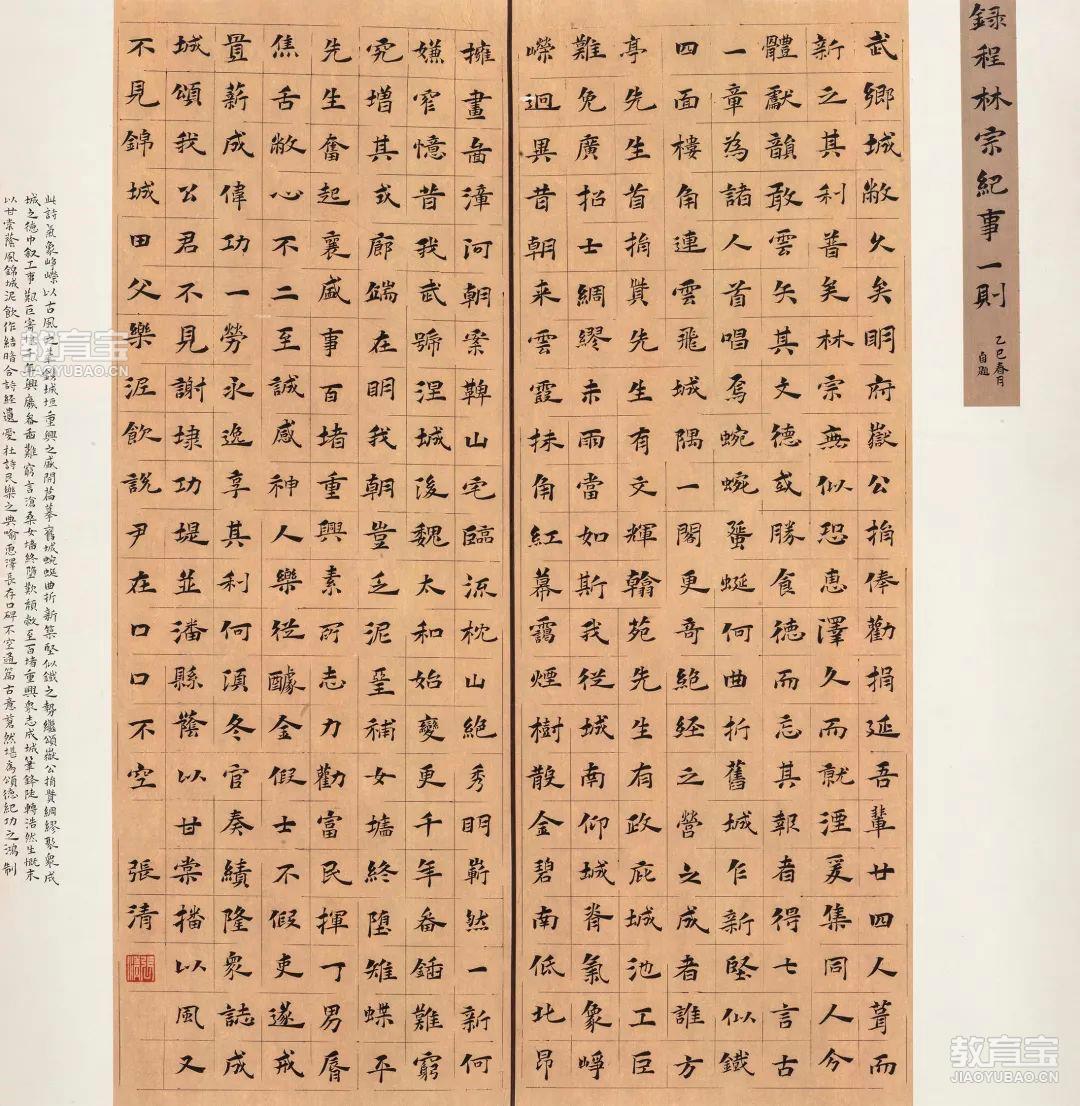 錄程林宗紀事一則
乙巳春月
自題
武鄉城敝久矣明府嶽公捐俸勸捐延吾輩廿四人葺而
新之其利普矣林宗無似恐惠澤久而就湮爰集同人今
體獻韻敢雲矢其文德或勝食德而忘其報者得七言古
一章為諸人首唱焉蜿蜿蜑蜒何曲折舊城乍新堅似鐵
四面樓角連雲飛城隅一閣更奇絕經之營之成者誰方
亭先生首捐貲先生有文輝翰苑先生有政庇城池工巨
難免廣招士綢繆未雨當如斯我從城南仰城脊氣象崢
嶸迥異昔朝來雲霞抹角紅暮靄煙樹散金碧南低北昂
擁畫啚漳河朝鞞山宅臨流枕山絕秀明嶄然一新何
嫌窄憶昔我武號涅城後魏太和始變更千年畚鍤難窮
究增其式廊端在明我朝豈乏泥堊補女墻終墮雉蝶平
先生奮起襄盛事百堵重興素所志力勸富民揮丁男脣
焦舌敝心不二至誠感神人樂從醵金假士不假吏遂戒
畳薪成偉功一勞永逸享其利何湏冬官奏績隆衆誌成
城頌我公君不見謝埭功堤並潘縣蔭以甘棠播以風又
不見錦城田父樂泥飲說尹在口口不空 張清
此詩氣象崢嶸以古風之筆錄城垣重興之盛開篇摹舊城蜿蜒曲折新築堅似鐵之勢繼頌嶽公捐貲綢繆聚衆成
城之德中敘工事艱巨寄慨千年興廢畚鍤難窮言滄桑女墻終墮歎頹敝至百堵重興衆志成城筆鋒陡轉浩然生慨末
以甘棠蔭風錦城泥飲作結暗合詩經遺愛杜詩民樂之典喻惠澤長存口碑不空通篇古意蒼然堪為頌德紀功之鴻制
教育宝
JIAOYUBAO.CN